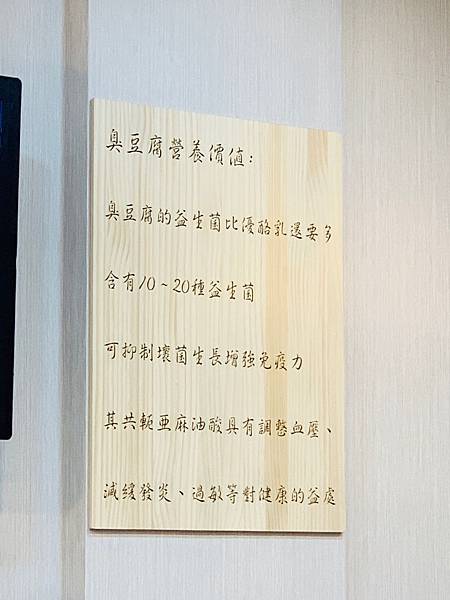 臭豆腐營養價值:
臭豆腐的益生菌比優酪乳還要多
含有10~20種益生菌
可抑制壞菌生長增強免疫力
其共軛亞麻油酸具有調整血壓、
減緩發炎、過敏等對健康的益處